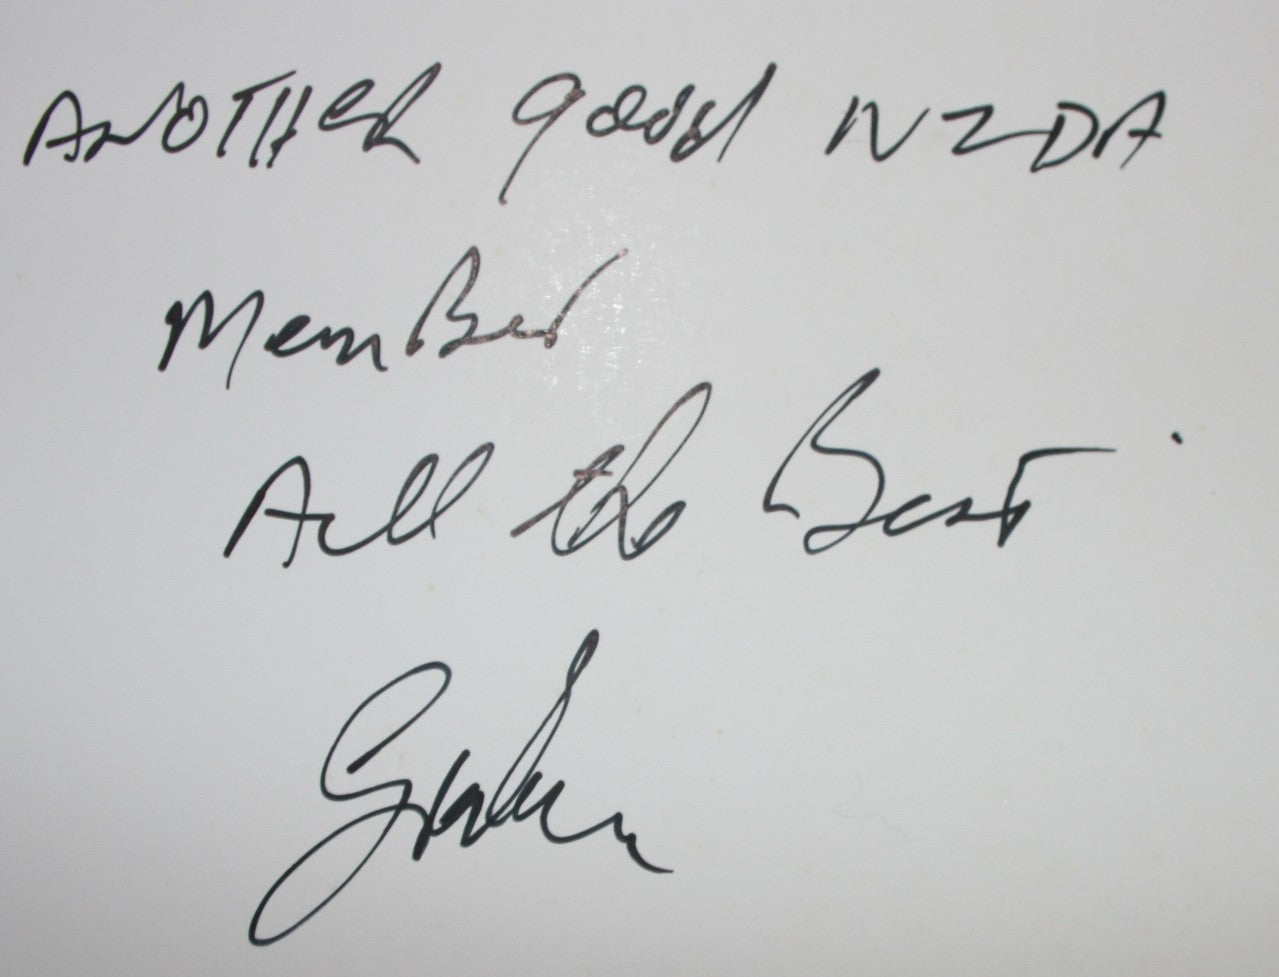 ANOTHER good NZDA
MemBer
All the Best.
Graham